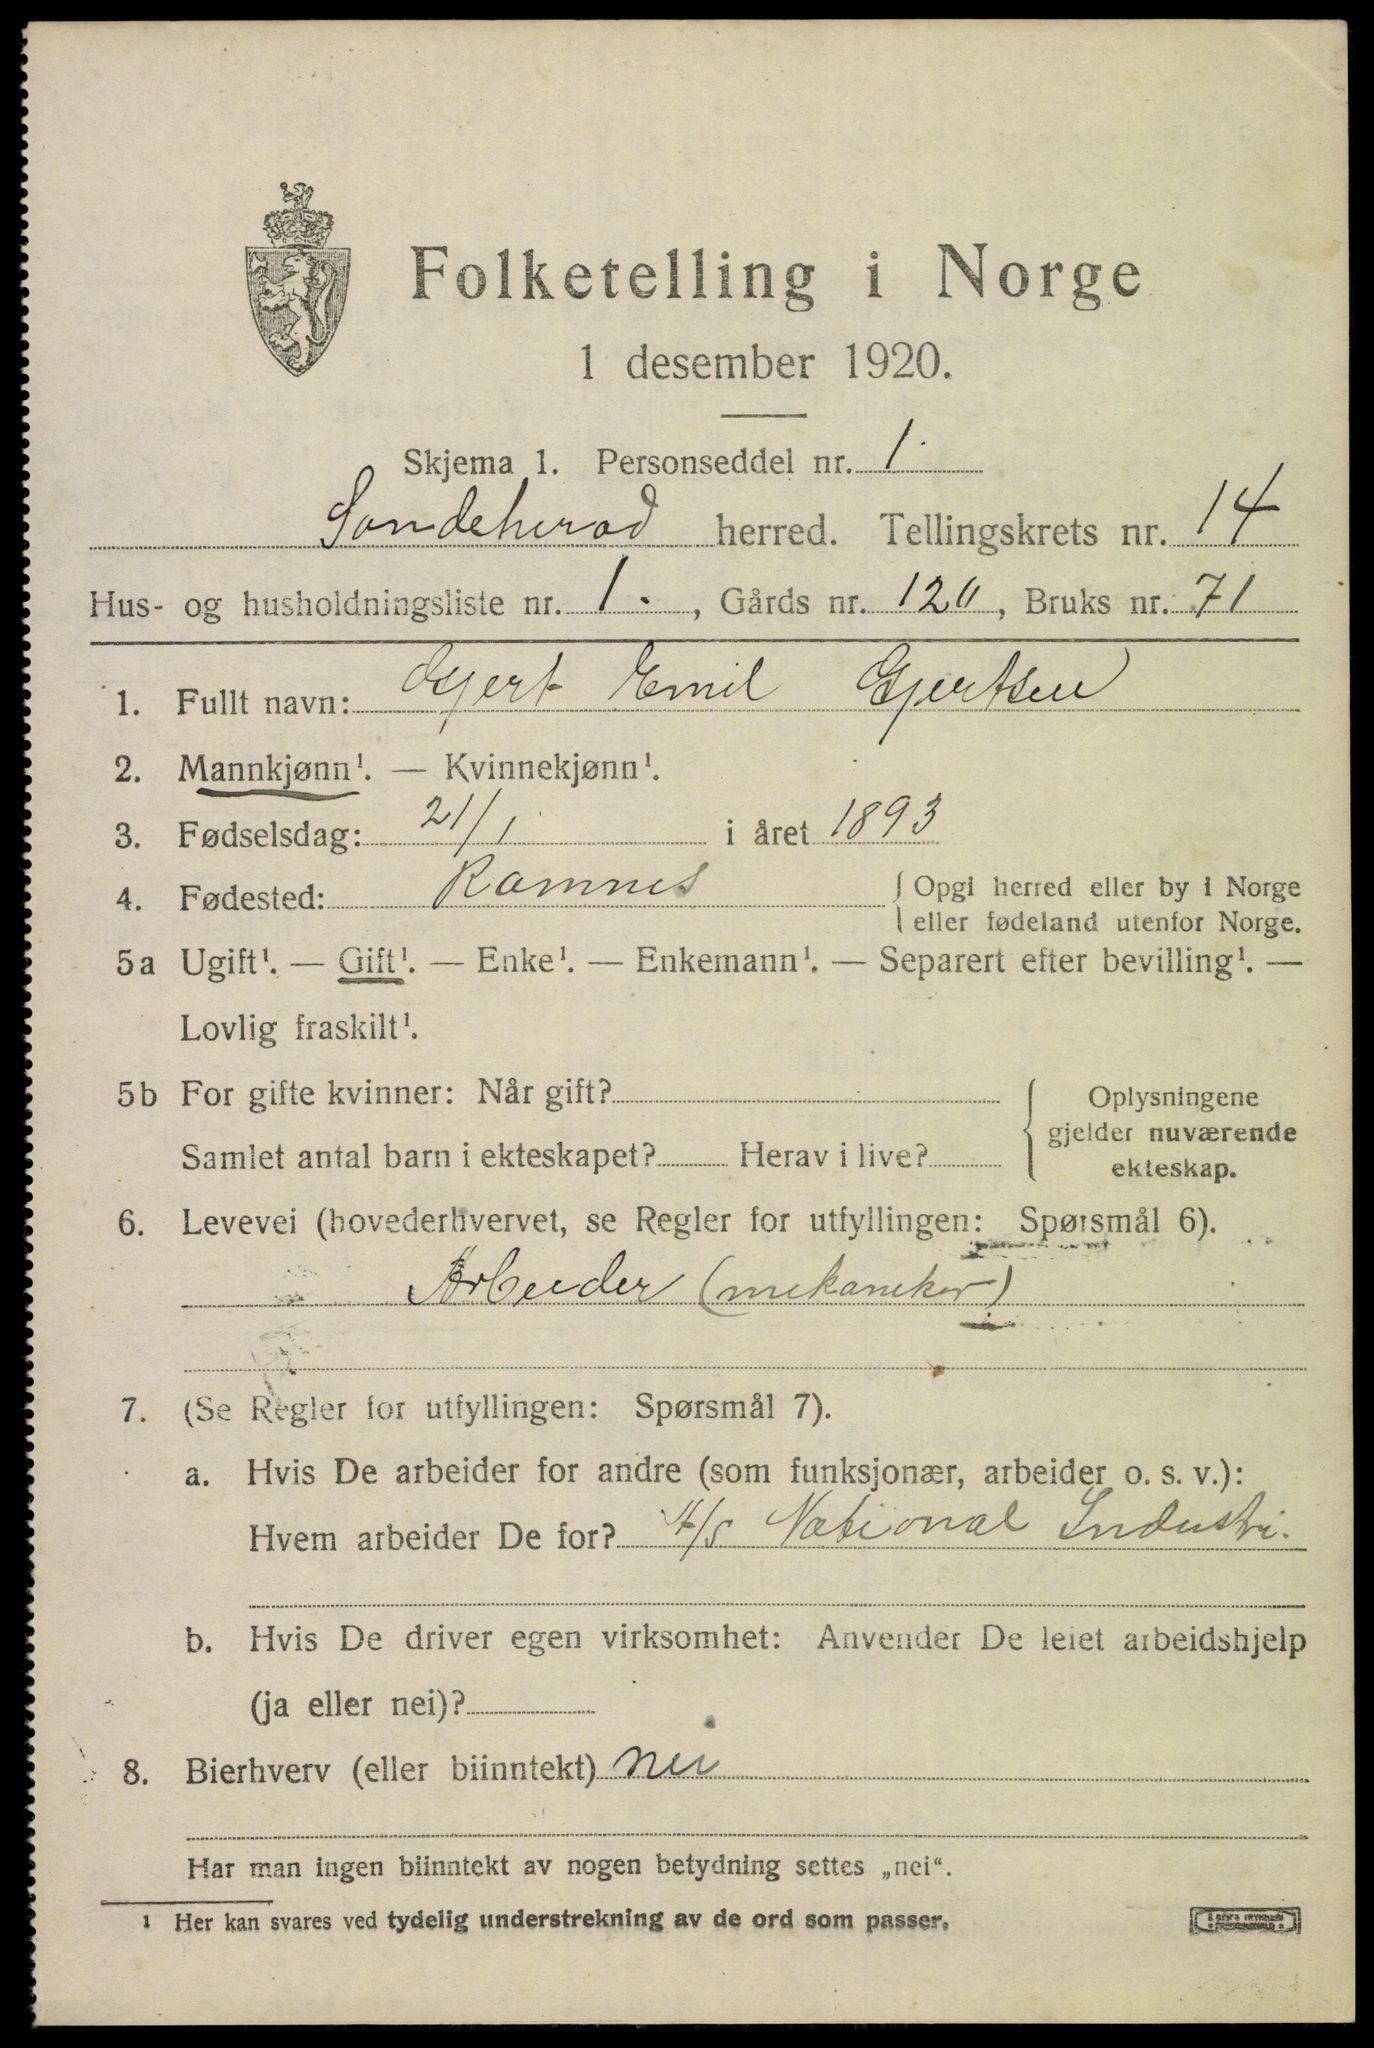 Folketelling i Norge
1 desember 1920.
Skjema 1. Personseddel nr. 1.
Sandeherad herred. Tellingskrets nr. 14
Hus- og husholdningsliste nr. 1. , Gårds nr. 120, Bruks nr. 71
1. Fullt navn: Gjert Emil Gjertsen
2. Mannkjønn¹. — Kvinnekjønn¹.
3. Fødselsdag: 21/1 i året 1893
4. Fødested: Ramnes { Opgi herred eller by i Norge
eller fødeland utenfor Norge.
5a Ugift¹. — Gift¹. — Enke¹. — Enkemann¹. — Separert efter bevilling¹. —
Lovlig fraskilt¹.
5b For gifte kvinner: Når gift? { Oplysningene
gjelder nuværende
Samlet antal barn i ekteskapet? Herav i live?
ekteskap.
6. Levevei (hovederhvervet, se Regler for utfyllingen: Spørsmål 6).
Arbeider (mekaniker)
7. (Se Regler for utfyllingen: Spørsmål 7).
a. Hvis De arbeider for andre (som funksjonær, arbeider o. s. v.):
Hvem arbeider De for? A/S National Industri.
b. Hvis De driver egen virksomhet: Anvender De leiet arbeidshjelp
(ja eller nei)?
8. Bierhverv (eller biinntekt) nei
Har man ingen biinntekt av nogen betydning settes „nei“.
1 Her kan svares ved tydelig understrekning av de ord som passer.